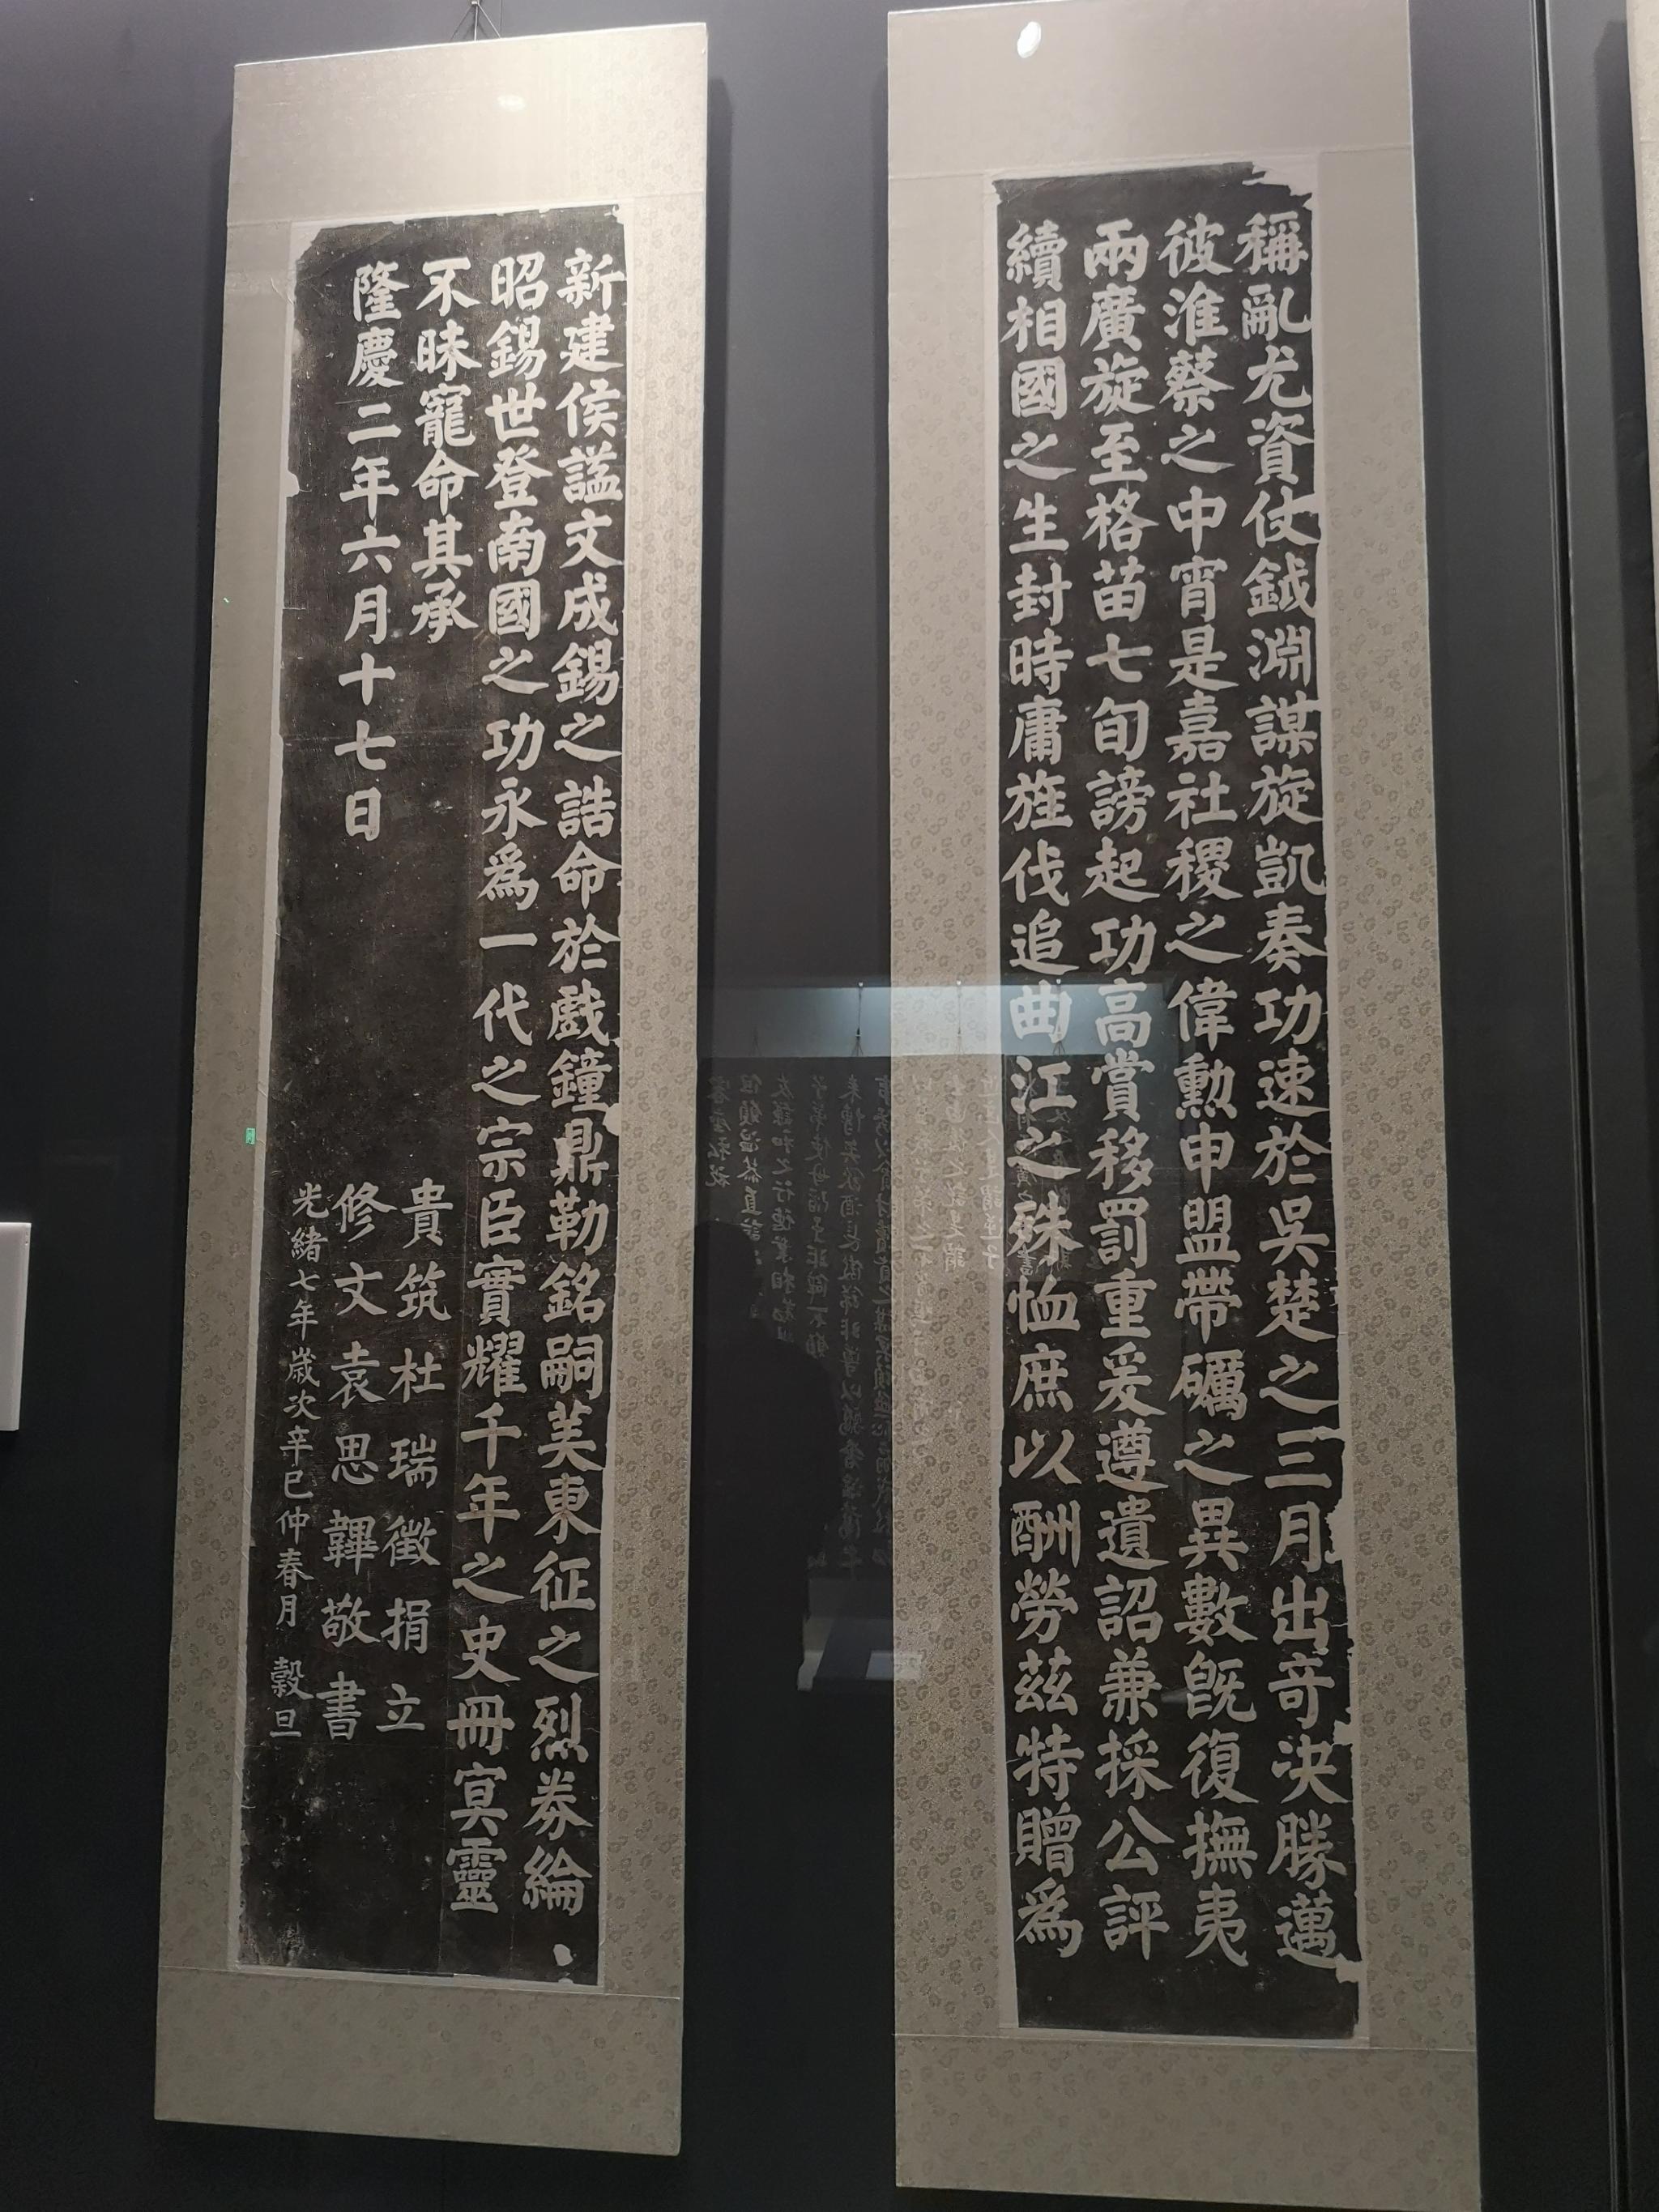 稱亂尤資仗鉞淵謀旋凱奏功速於吳楚之三月出竒决勝邁
彼淮蔡之中宵是嘉社稷之偉勳申盟帶礪之異數旣復撫夷
兩廣旋至格苗七旬謗起功高賞移罰重爰遵遺詔兼採公評
續相國之生封時庸旌伐追曲江之殊恤庶以酬勞茲特贈為
新建侯謚文成錫之誥命於戲鐘鼎勒銘嗣美東征之烈券綸
昭錫世登南國之功永為一代之宗臣實耀千年之史冊冥靈
不昧寵命其承
隆慶二年六月十七日
貴筑杜瑞徵捐立
修文袁思韠敬書
光緒七年歲次辛巳仲春月 穀旦